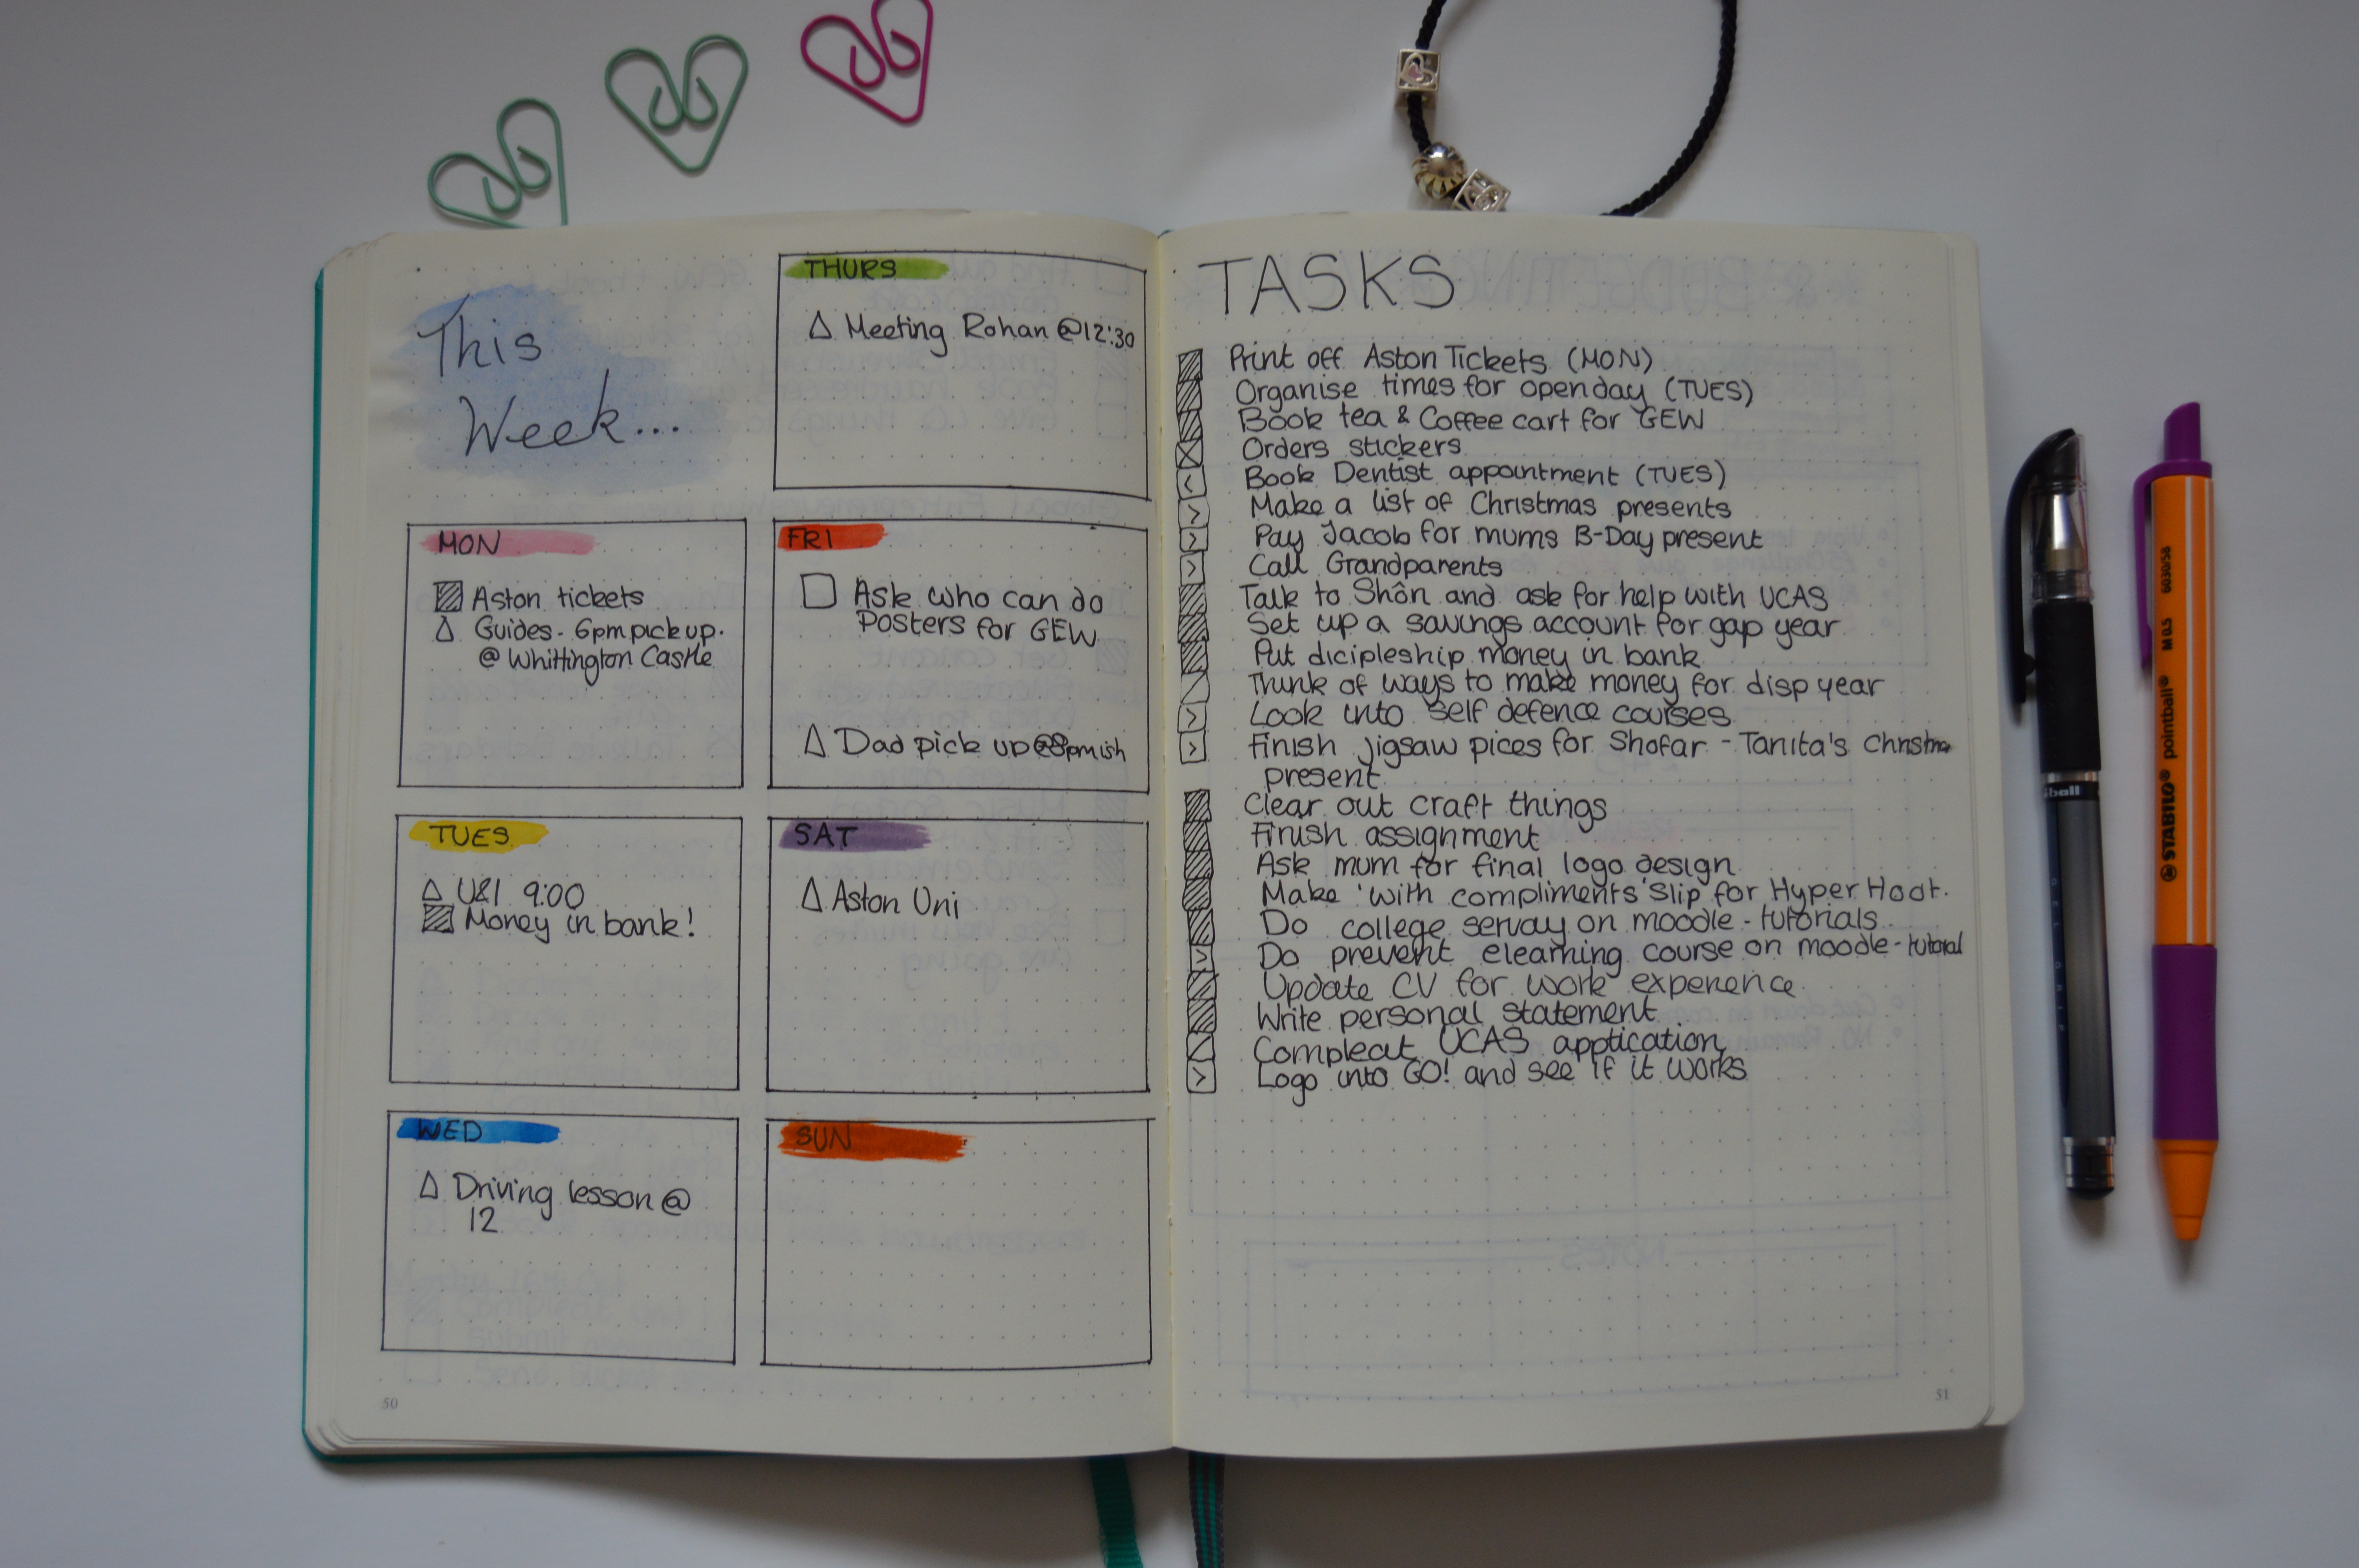 This
Week...
THURS
Meeting Rohan @12:30
MON
Aston tickets
Guides - 6pm pick up.
@ Whittington Castle
FRI
Ask who can do
Posters for GEW
Dad pick up @8pmish
TUES
U&I 9:00
Money in bank!
SAT
Aston Uni
WED
Driving lesson @
12
SUN
50
TASKS
Print off Aston Tickets (MON)
Organise times for open day (TUES)
Book tea & Coffee cart for GEW
Orders stickers
Book Dentist appointment (TUES)
Make a list of Christmas presents
Pay Jacob for mums B-Day present
Call Grandparents
Talk to Shôn and ask for help with UCAS
Set up a savings account for gap year
Put dicipleship money in bank
Think of ways to make money for disp year
Look into self defence courses
Finish jigsaw pices for Shofar - Tanita's Christma
present
Clear out craft things
Finish assignment
Ask mum for final logo design
Make 'with compliments' Slip for Hyper Hoot.
Do college servay on moodle - tutorials
Do prevent elearning course on moodle - tutorial
Update CV for work experience
Write personal statement
Compleat UCAS application
Logo into GO! and see if it works
NOTES
51
ball
STABILO® pointball® M 0.5 6030/58